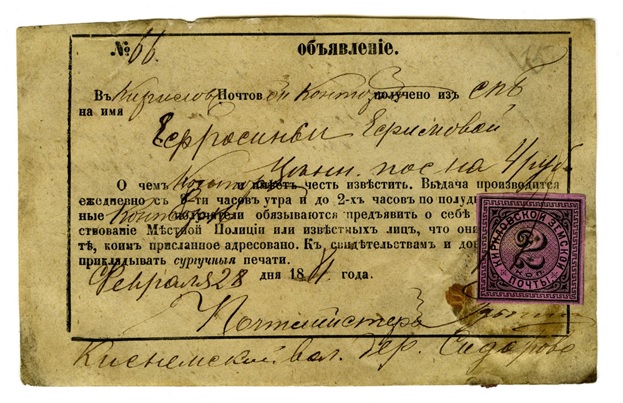 № 66. объявленіе.
Въ Кирилов Почтов ой Конто получено изъ СПБ
на имя
Ефросиньи Ефимовой
пос на 4 руб
О чемъ и имѣетъ честь извѣстить. Выдача производится
ежедневно съ 8-ти часовъ утра и до 2-хъ часовъ по полуд
ные обязываются предъявить о себѣ
ствованіе Мѣстной Полиціи или извѣстныхъ лицъ, что они
тѣ, коимъ присланное адресовано. Къ свидѣтельствамъ и до
прикладывать сургучныя печати.
Февраля 28 дня 18 года.
Почтмейстеръ
Киснемской вол. дер. Сидорово
КИРИЛОВСКОЙ ЗЕМСКОЙ
2
КОП.
ПОЧТЫ